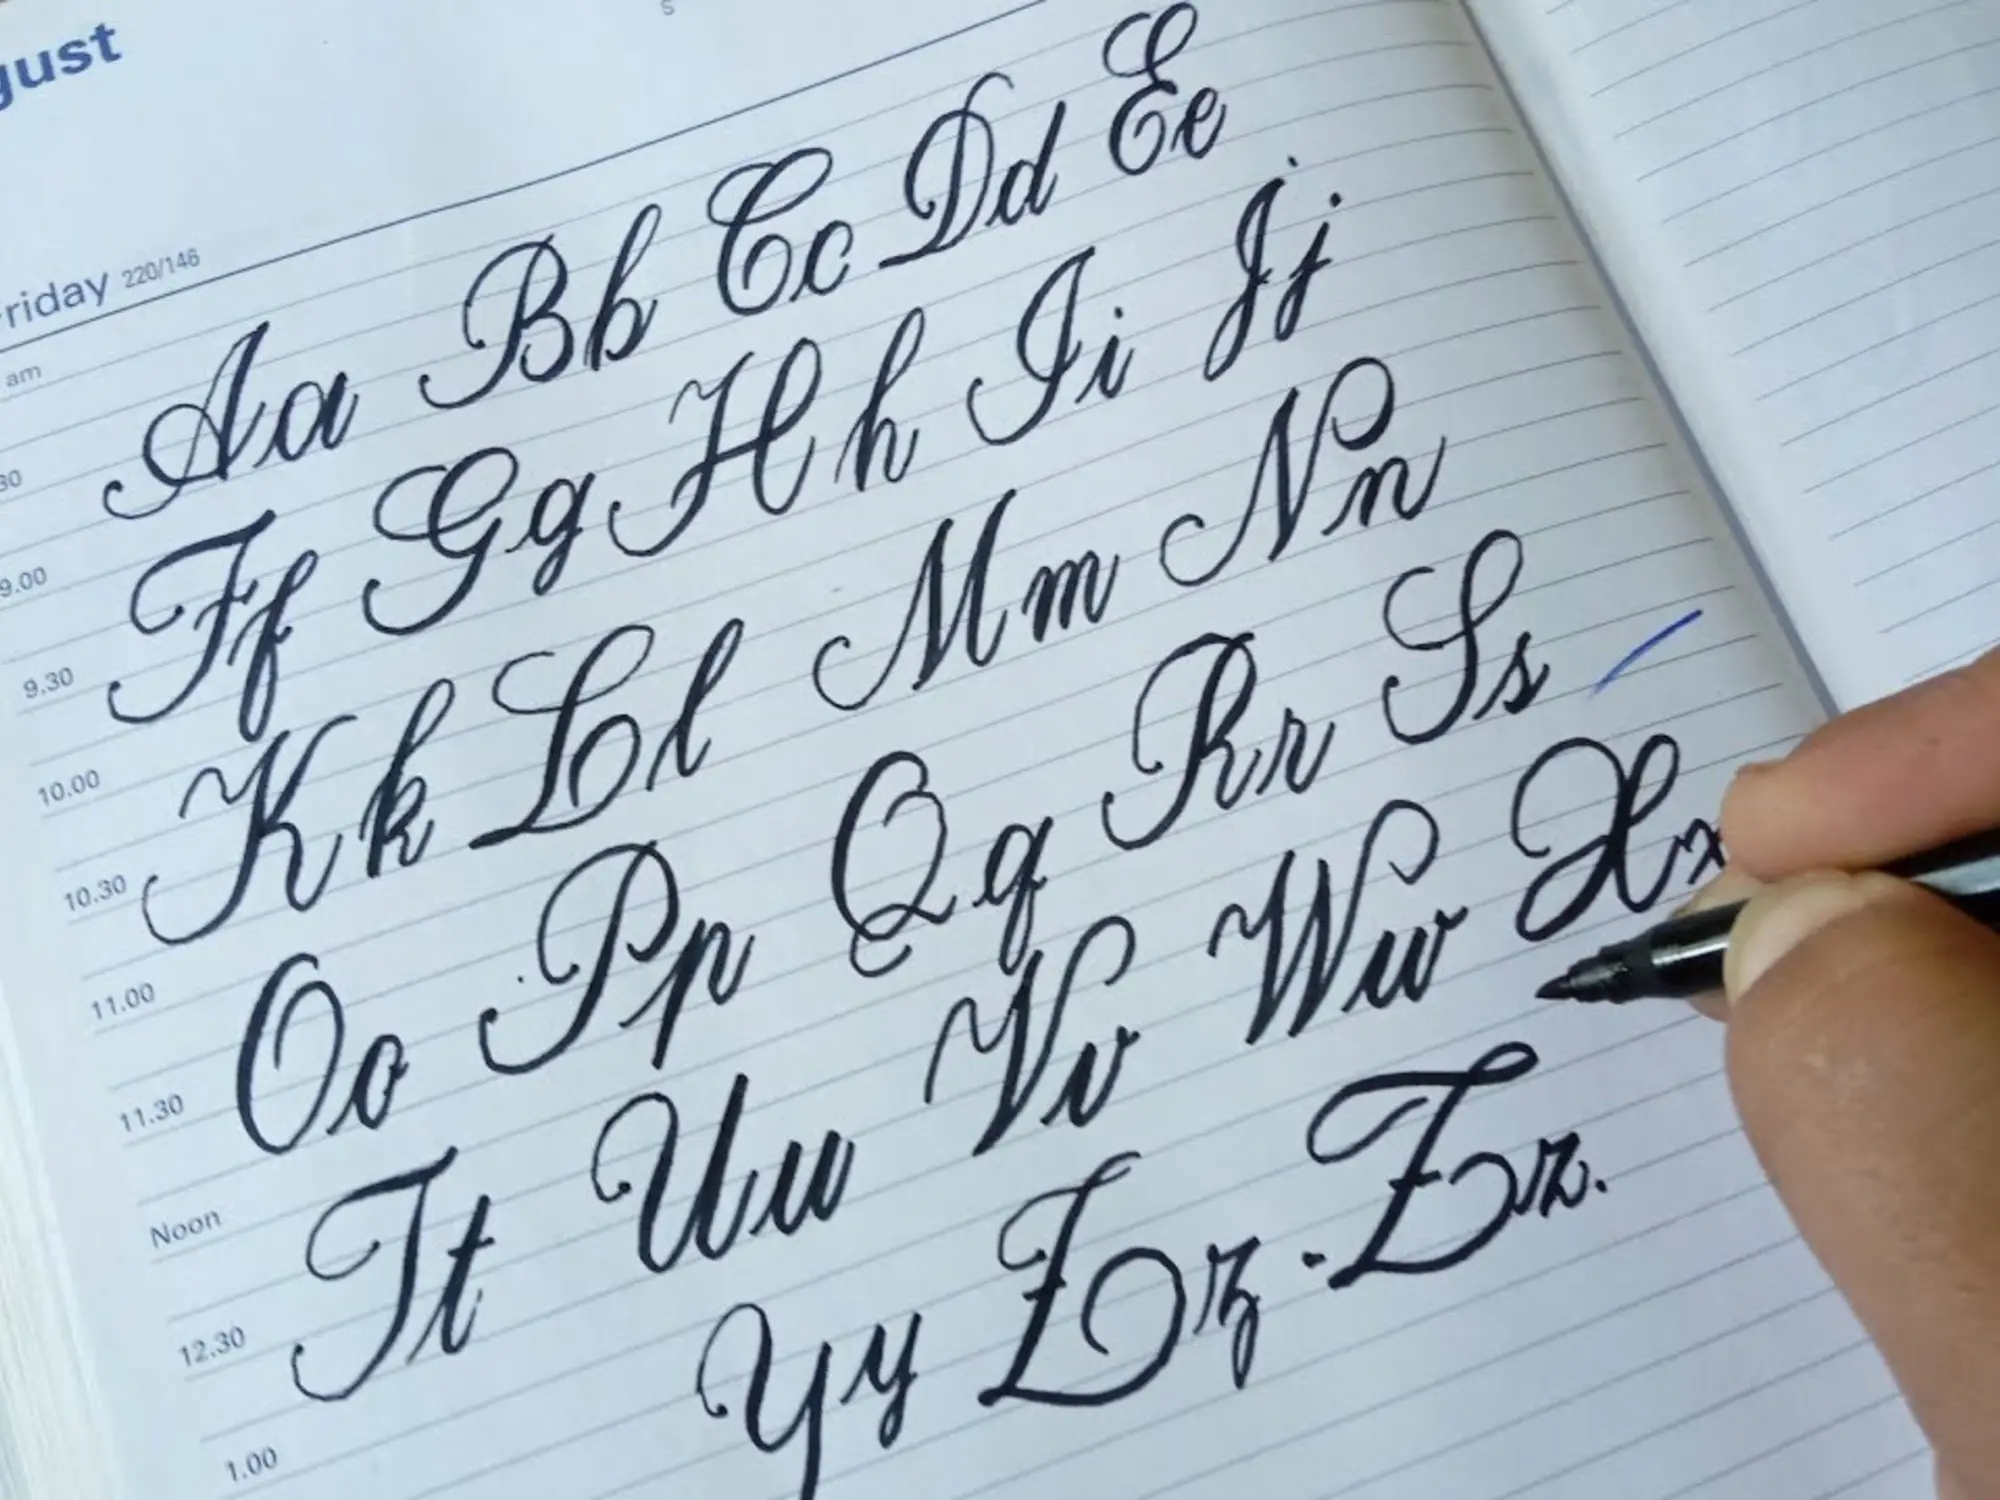 gust
S
riday 220/146
am
Aa Bb Cc Dd Ee
30
Ff Gg Hh Ii Jj
9.00
9.30
Kk Ll Mm Nn
10.00
10.30
Oo Pp Qq Rr Ss
11.00
11.30
Tt Uu Vv Ww Xx
Noon
12.30
Yy Zz . Zz.
1.00